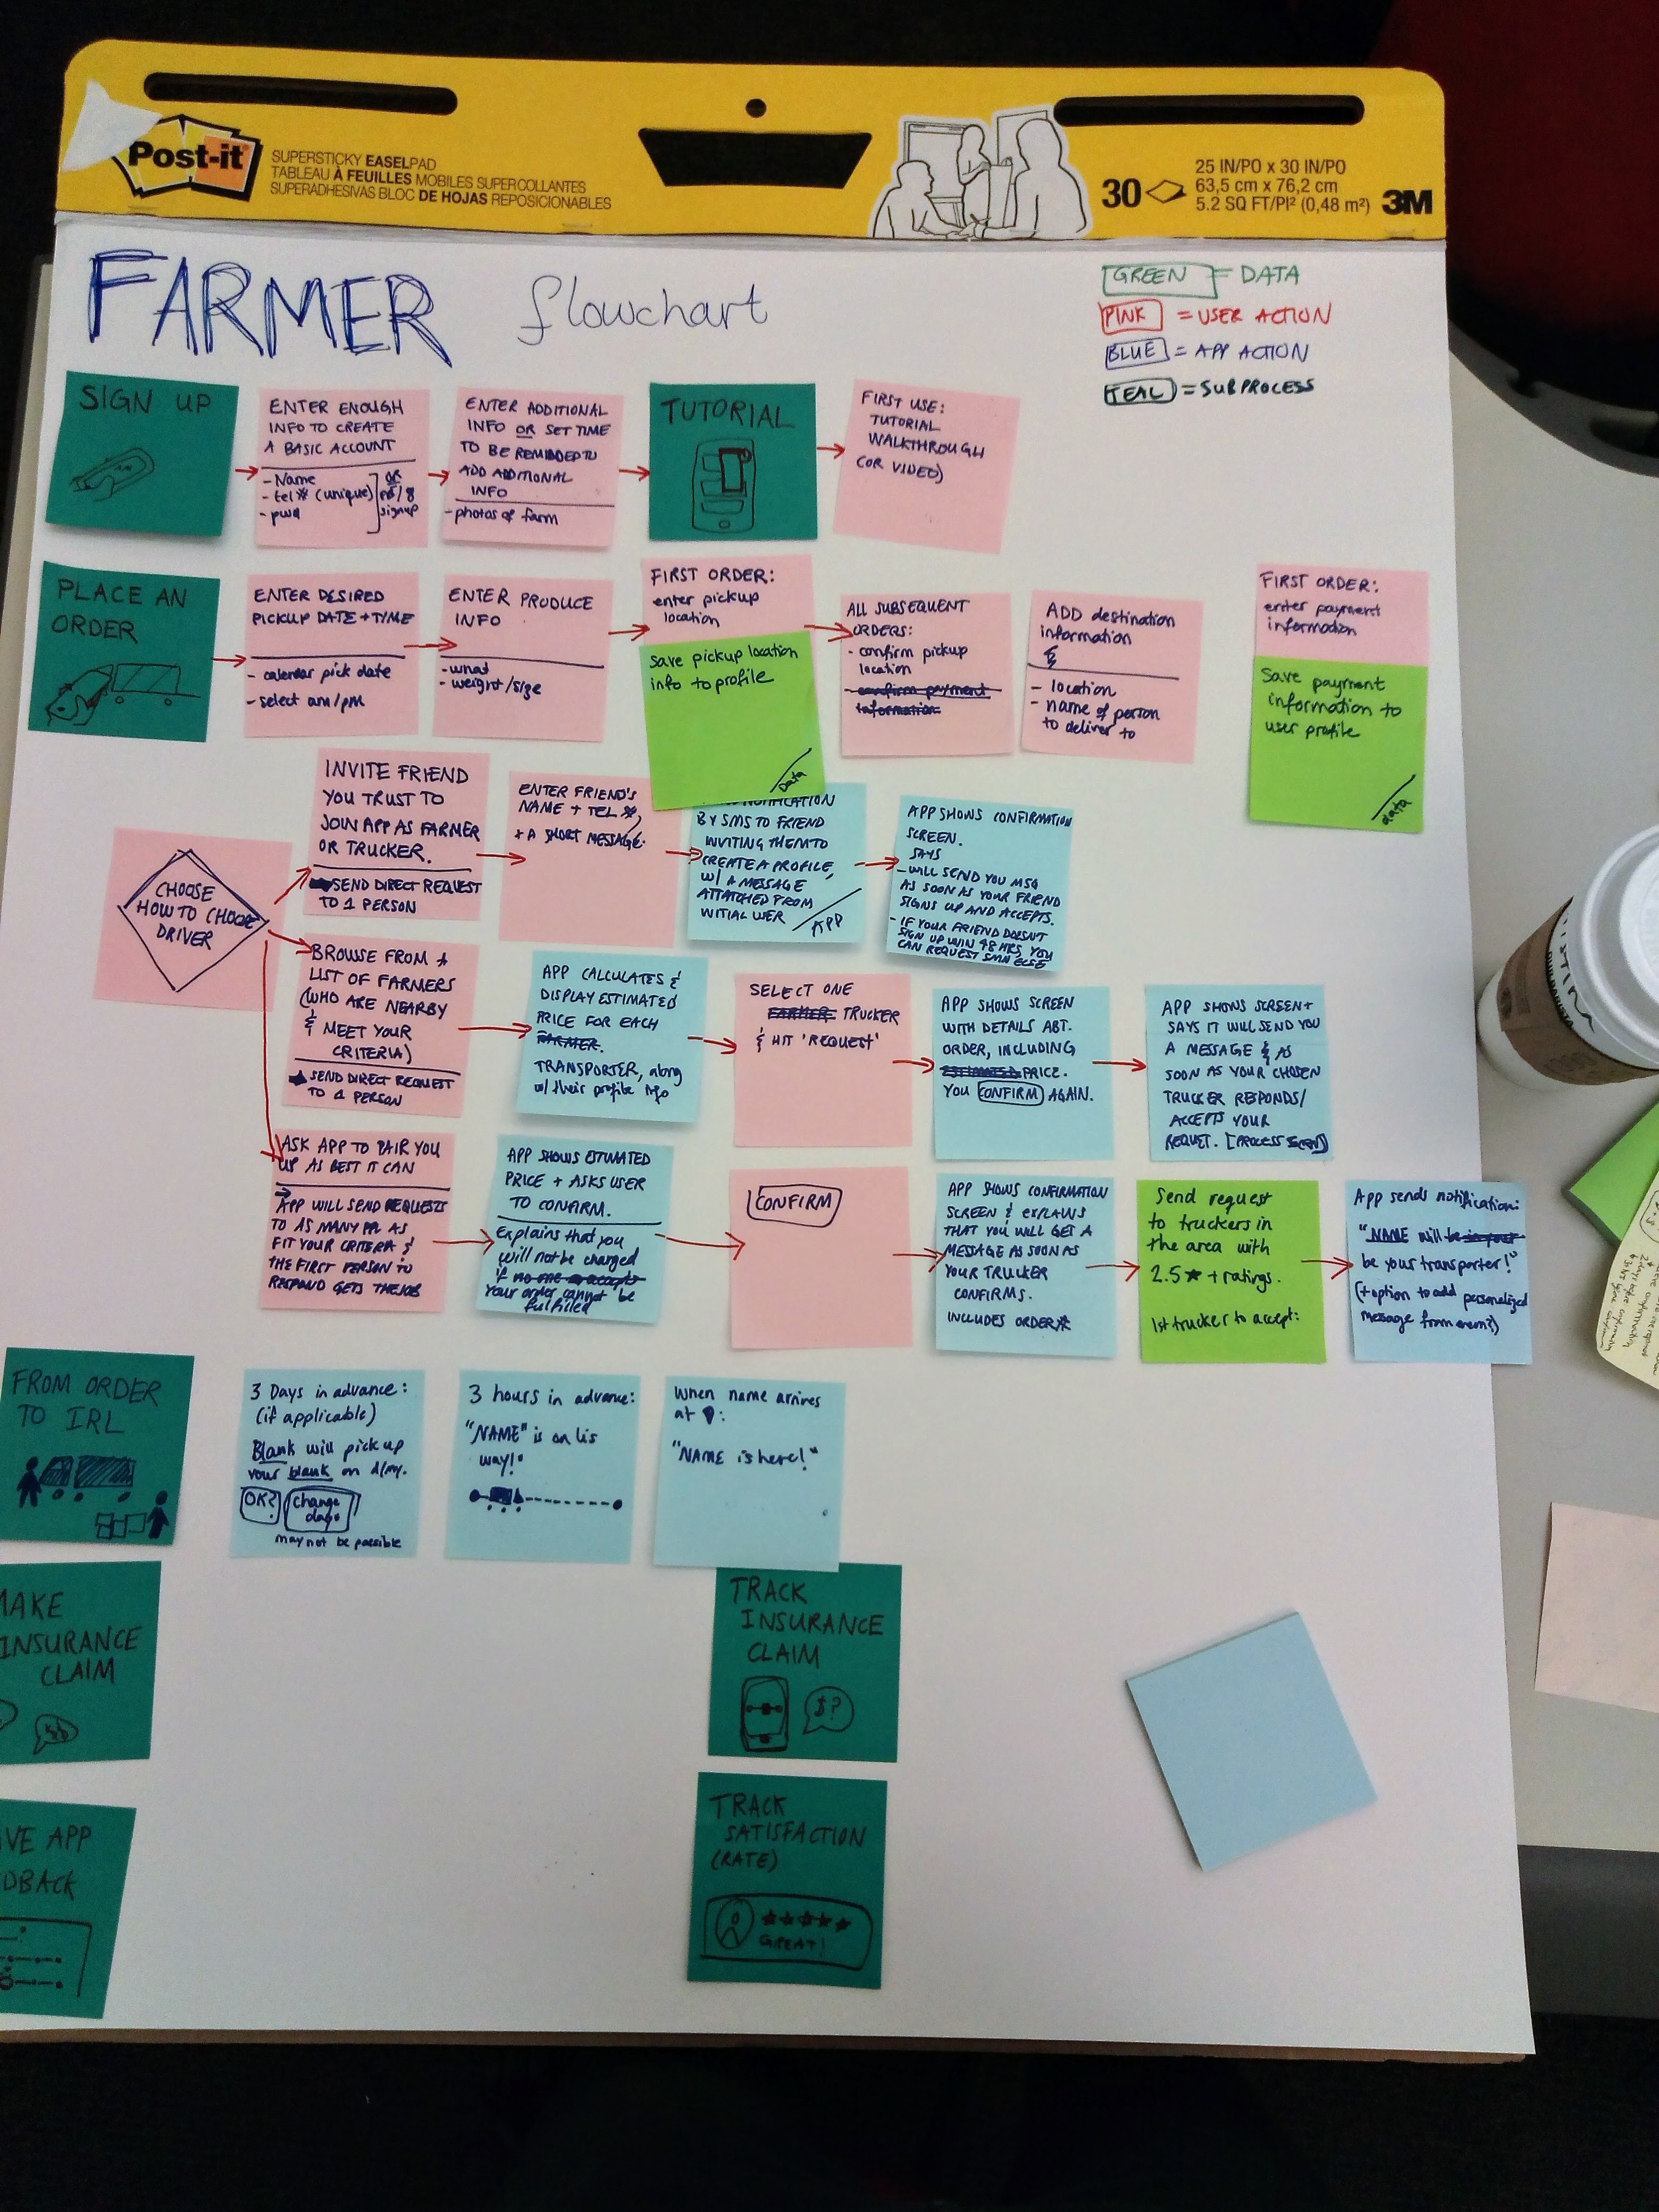 Post-it
SUPERSTICKY EASELPAD
TABLEAU À FEUILLES MOBILES SUPERCOLLANTES
SUPERADHESIVAS BLOC DE HOJAS REPOSICIONABLES
30
25 IN/PO x 30 IN/PO
63,5 cm x 76,2 cm
5.2 SQ FT/PI² (0,48 m²)
3M
FARMER flowchart
GREEN = DATA
PINK = USER ACTION
BLUE = APP ACTION
TEAL = SUBPROCESS
SIGN UP
ENTER ENOUGH
INFO TO CREATE
A BASIC ACCOUNT
- Name
- tel # (unique)
- pwd
OR
signup
ENTER ADDITIONAL
INFO OR SET TIME
TO BE REMINDED TO
ADD ADDITIONAL
INFO
- photos of farm
TUTORIAL
FIRST USE:
TUTORIAL
WALKTHROUGH
(OR VIDEO)
PLACE AN
ORDER
ENTER DESIRED
PICKUP DATE + TIME
- calendar pick date
- select am/pm
ENTER PRODUCE
INFO
- what
- weight/size
FIRST ORDER:
enter pickup
location
Save pickup location
info to profile
data
ALL SUBSEQUENT
ORDERS:
- confirm pickup
location
confirm payment
information
ADD destination
information
- location
- name of person
to deliver to
FIRST ORDER:
enter payment
information
Save payment
information to
user profile
data
CHOOSE
HOW TO CHOOSE
DRIVER
INVITE FRIEND
YOU TRUST TO
JOIN APP AS FARMER
OR TRUCKER.
SEND DIRECT REQUEST
TO 1 PERSON
ENTER FRIEND'S
NAME + TEL #,
+ A SHORT MESSAGE.
NOTIFICATION
BY SMS TO FRIEND
INVITING THEM TO
CREATE A PROFILE,
W/ A MESSAGE
ATTATCHED FROM
INITIAL USER
APP
APP SHOWS CONFIRMATION
SCREEN.
SAYS
- WILL SEND YOU MSG
AS SOON AS YOUR FRIEND
SIGNS UP AND ACCEPTS.
- IF YOUR FRIEND DOESN'T
SIGN UP W/IN 48 HRS, YOU
CAN REQUEST SMN ELSE
BROWSE FROM A
LIST OF FARMERS
(WHO ARE NEARBY
& MEET YOUR
CRITERIA)
SEND DIRECT REQUEST
TO 1 PERSON
APP CALCULATES &
DISPLAY ESTIMATED
PRICE FOR EACH
FARMER.
TRANSPORTER, along
w/ their profile info
SELECT ONE
FARMER TRUCKER
& HIT 'REQUEST'
APP SHOWS SCREEN
WITH DETAILS ABT.
ORDER, INCLUDING
ESTIMATED PRICE.
YOU CONFIRM AGAIN.
APP SHOWS SCREEN +
SAYS IT WILL SEND YOU
A MESSAGE & AS
SOON AS YOUR CHOSEN
TRUCKER RESPONDS/
ACCEPTS YOUR
REQUET. [PROCESS
ASK APP TO PAIR YOU
UP AS BEST IT CAN
APP WILL SEND REQUESTS
TO AS MANY PPL AS
FIT YOUR CRITERIA &
THE FIRST PERSON TO
RESPOND GETS THE JOB
APP SHOWS ESTIMATED
PRICE + ASKS USER
TO CONFIRM.
Explains that you
will not be charged
if no one accepts
your order cannot be
fulfilled
CONFIRM
APP SHOWS CONFIRMATION
SCREEN & EXPLAINS
THAT YOU WILL GET A
MESSAGE AS SOON AS
YOUR TRUCKER
CONFIRMS.
INCLUDES ORDER #
Send request
to truckers in
the area with
2.5 ★ + ratings.
1st trucker to accept:
App sends notification:
"NAME will be in your
be your transporter!"
(+ option to add personalized
message from
FROM ORDER
TO IRL
3 Days in advance:
(if applicable)
Blank will pick up
your blank on d/my.
OK?
change
days
may not be possible
3 hours in advance:
"NAME" is on his
way!"
When name arrives
at :
"NAME is here!"
MAKE
INSURANCE
CLAIM
$$
TRACK
INSURANCE
CLAIM
$?
VE APP
DBACK
TRACK
SATISFACTION
(RATE)
★★★★★
GREAT!